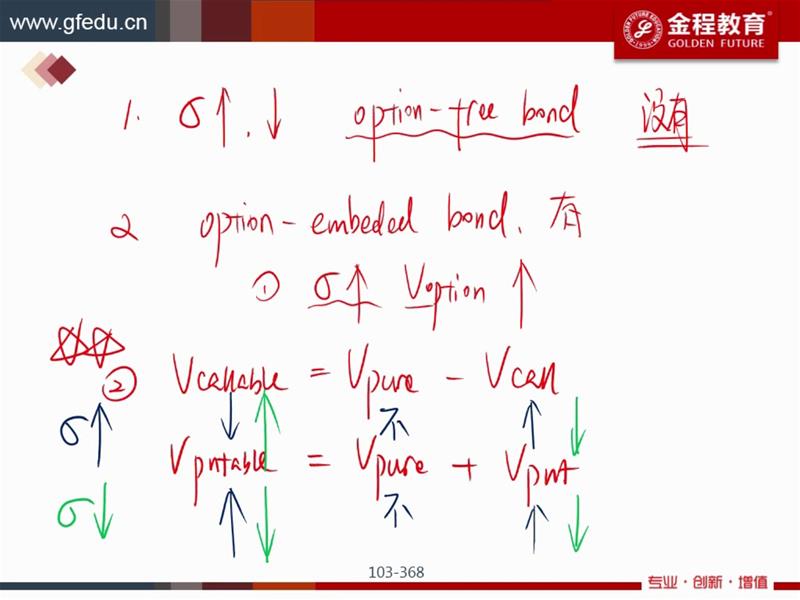 www.gfedu.cn
金程教育
GOLDEN FUTURE
1. σ↑.↓ option-free bond 没有
2 option-embeded bond. 有
① σ↑ Voption ↑
② Vcallable = Vpure - Vcall
σ↑ ↓ ↑ 不 ↑ ↓
Vputable = Vpure + Vput
σ↓ ↑ ↓ 不 ↑ ↓
103-368
专业·创新·增值